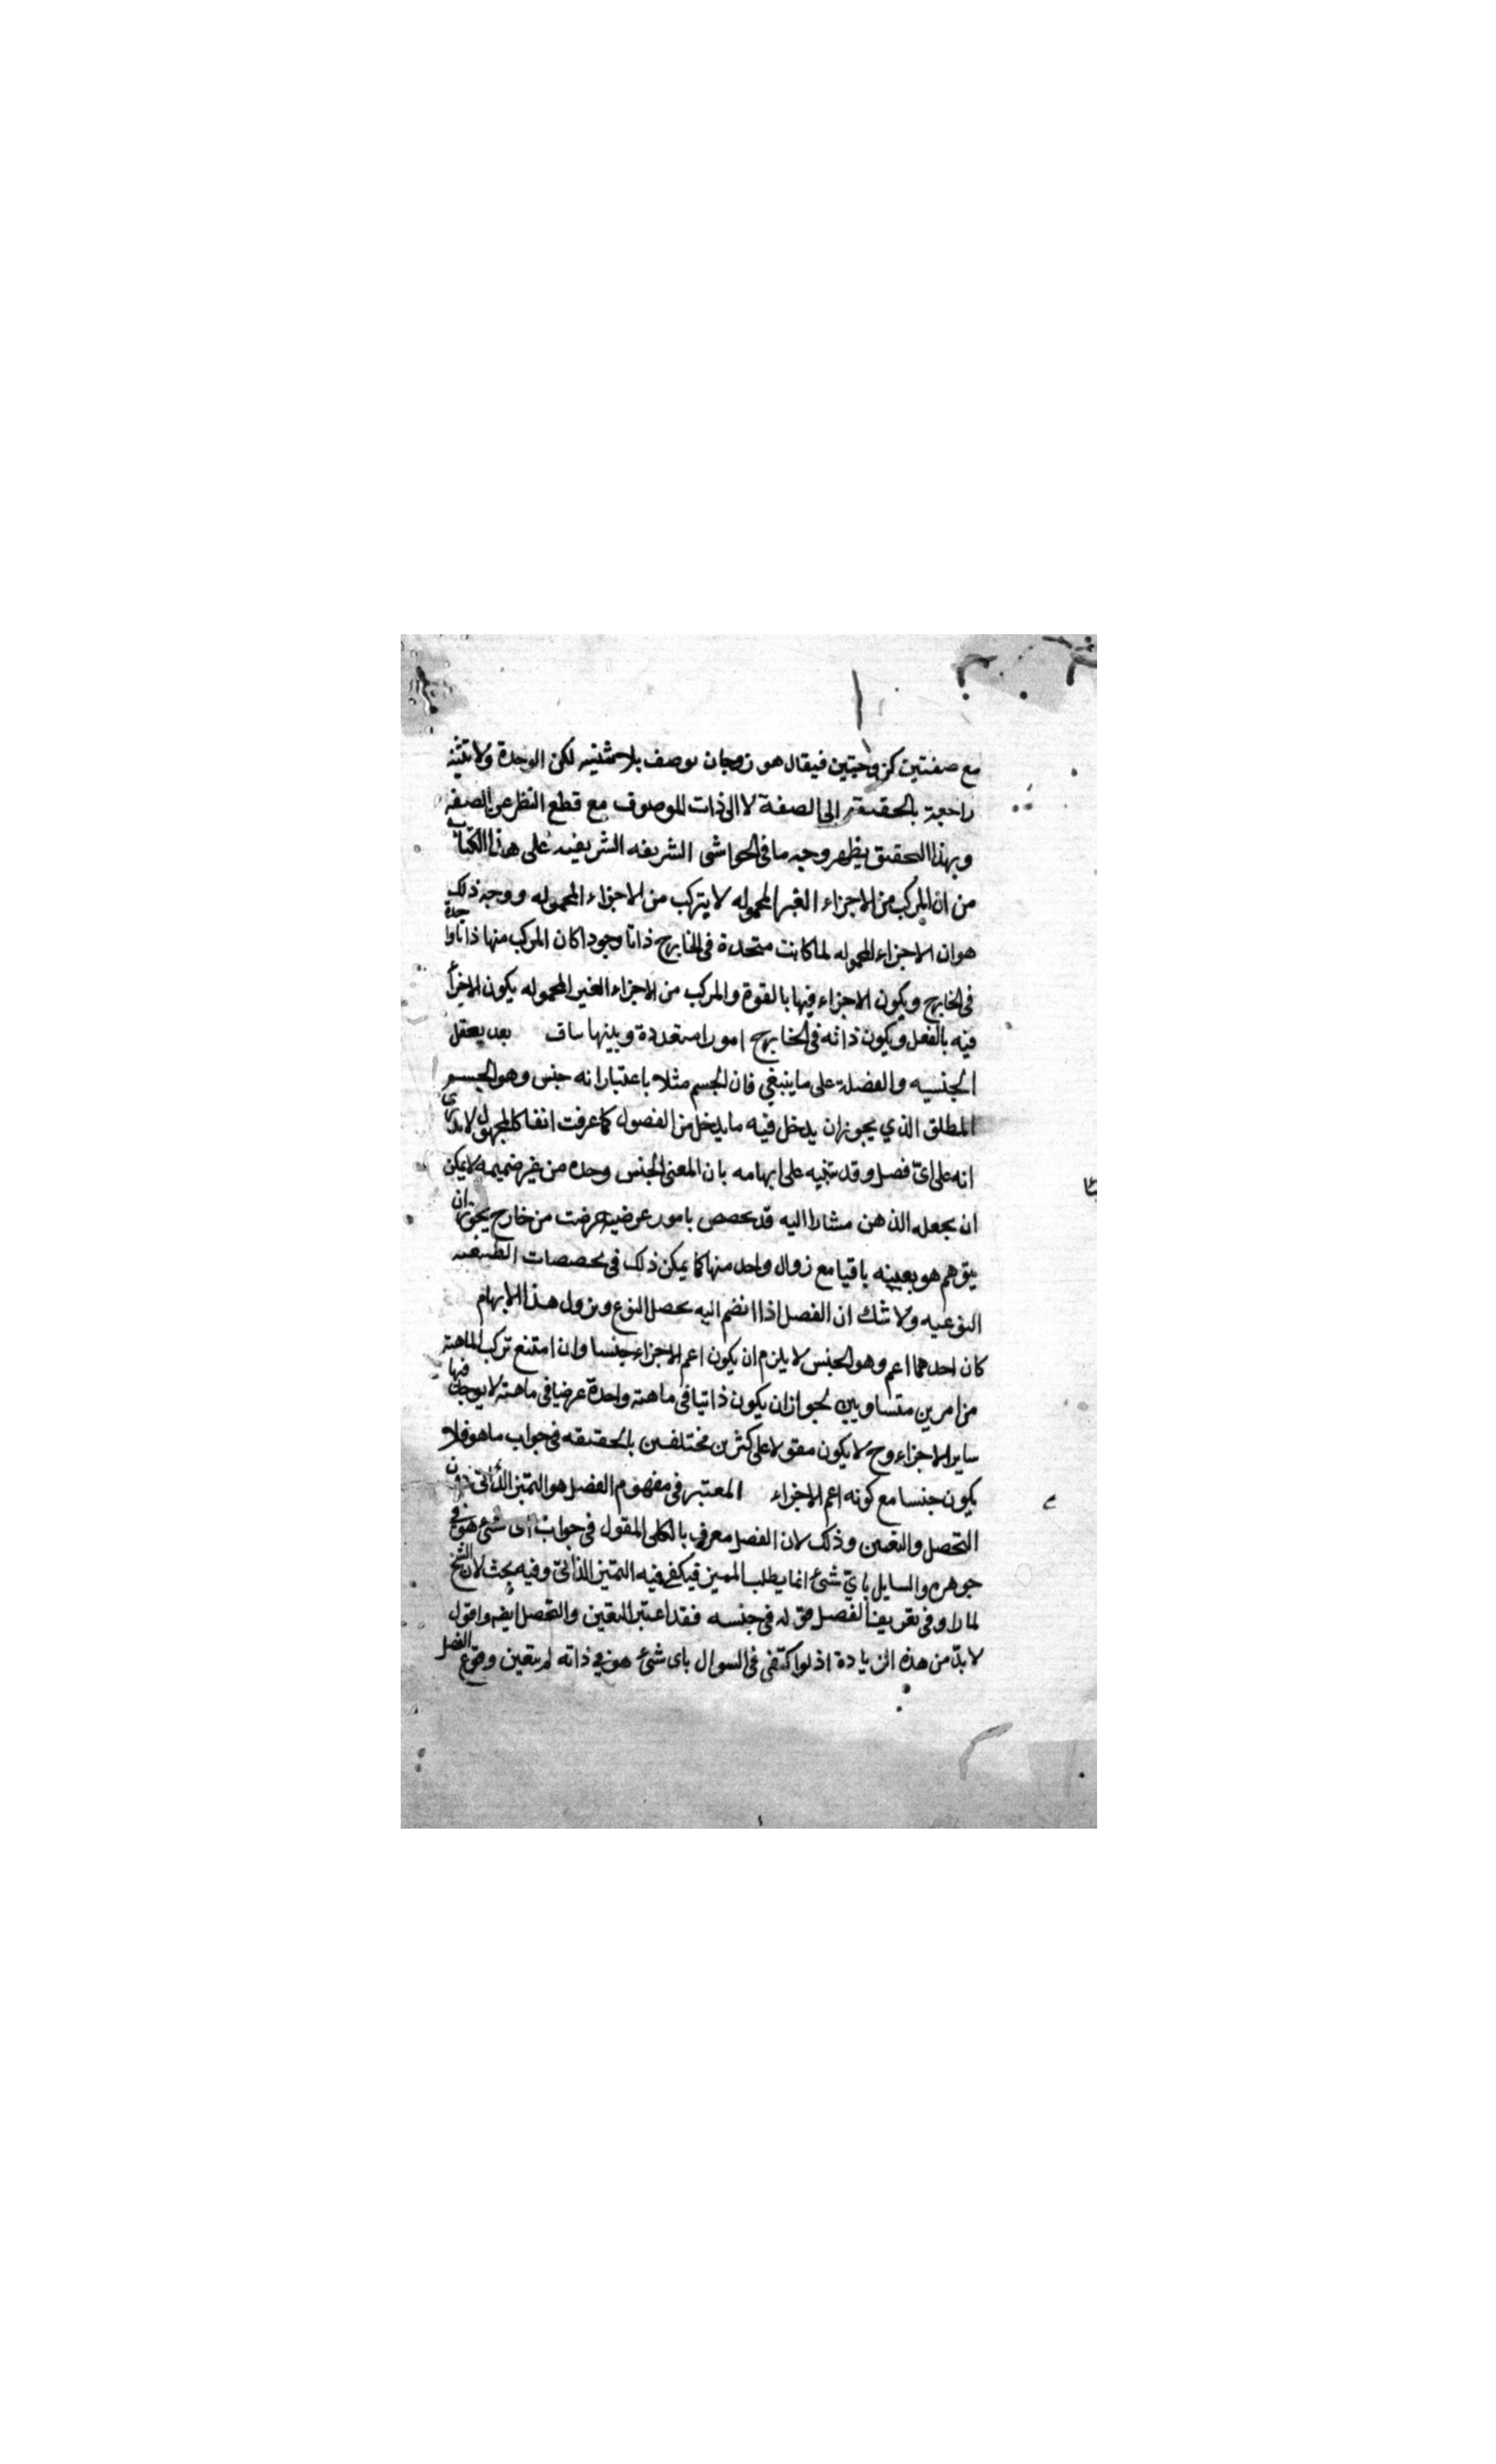 مع صفتين كزوجيتين فيقال هو زوجان يوصف بلا تثنيه لكن الوحدة ولا تثنيه
راجعة بالحقيقة الى الصفة لا الى ذات الموصوف مع قطع النظر عن الصفه
وبهذا التحقيق يظهر وجه ما فى الحواشى الشريفه الشريفيه على هذا الكتاب
من ان المركب من الاجزاء الغير المحموله لا يتركب من الاجزاء المحموله ووجه ذلك
هو ان الاجزاء المحموله لما كانت متحدة فى الخارج ذاتا وجودا كان المركب منها ذاتا واحدة
فى الخارج ويكون الاجزاء فيها بالقوة والمركب من الاجزاء الغير المحموله يكون الاجزاء
فيه بالفعل ويكون ذاته فى الخارج امورا متعددة وبينها ساف بعد يعقل
الجنسيه والفصلية على ما ينبغي فان الجسم مثلا باعتبار انه جنس وهو الجسم
المطلق الذي يجوز ان يدخل فيه ما يدخل من الفصول كما عرفت انفا كالمجهول لا يدرى
انه على اىّ فصل وقد تنبيه على ابهامه بان المعنى الجنس وحده من غير ضميمه لا يمكن
ان يجعله الذهن مشارا اليه قد تخصص بامور عرضية عرضت من خارج يجوز ان
يتوهم هو بعينه باقيا مع زوال واحد منها كما يمكن ذلك فى تخصصات الطبيعه
النوعيه ولا شك ان الفصل اذا انضم اليه تحصل النوع ويزول هذا الابهام
كان احدهما اعم وهو الجنس لا يلزم ان يكون اعم الاجزاء جنسا وان امتنع تركب الماهية
من امرين متساويين لجواز ان يكون ذاتيا فى ماهية واحدة عرضيا فى ماهية لا يوجد فيها
ساير الاجزاء وح لا يكون مقولا على كثرين مختلفين بالحقيقه فى جواب ما هو فلا
يكون جنسا مع كونه اعم الاجزاء المعتبر فى مفهوم الفصل هو التميز الذاتى دون
التحصل والتعين وذلك لان الفصل معرف بالكلى المقول فى جواب اى شئ هو فى
جوهره والسايل باىّ شئ انما يطلب المميز فيكفى فيه التميز الذاتى وفيه بحث لان الشيخ
لما راو فى تعريف الفصل قوله فى جنسه فقد اعتبر التعين والتحصل ايضه واقول
لا بدّ من هذه الزيادة اذ لو اكتفى فى السوال باى شئ هو فى ذاته لم يتعين وقوع الفصل